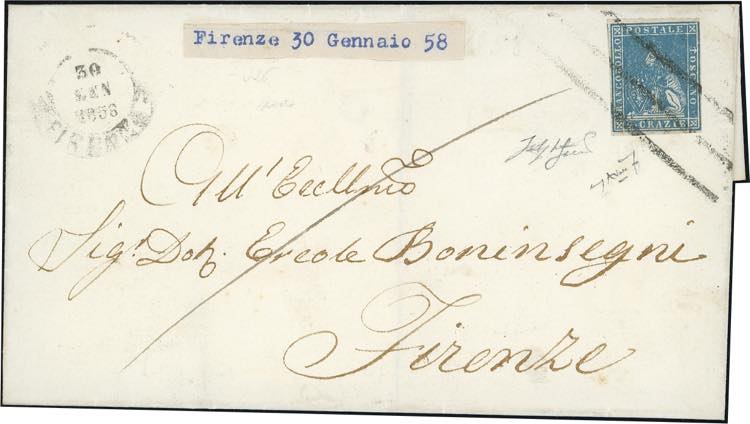 Firenze 30 Gennaio 58
30
GEN
1858
FIRENZE
FRANCOBOLLO
POSTALE
TOSCANO
CRAZIE
All' Eccllmo
Sigr. Dotr. Ercole Boninsegni
Firenze